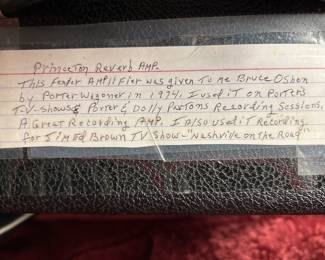 Princeton Reverb AMP.
This Fender Amplifier was given To me Bruce Osbon
by Porter Wagoner in 1974. I used iT on Porters
T-V-Shows & Porter & Dolly Partons Recording Sessions.
A Great Recording Amp. I Also used iT Recording
for Jim Ed Brown TV Show-"Nashville on the Road"